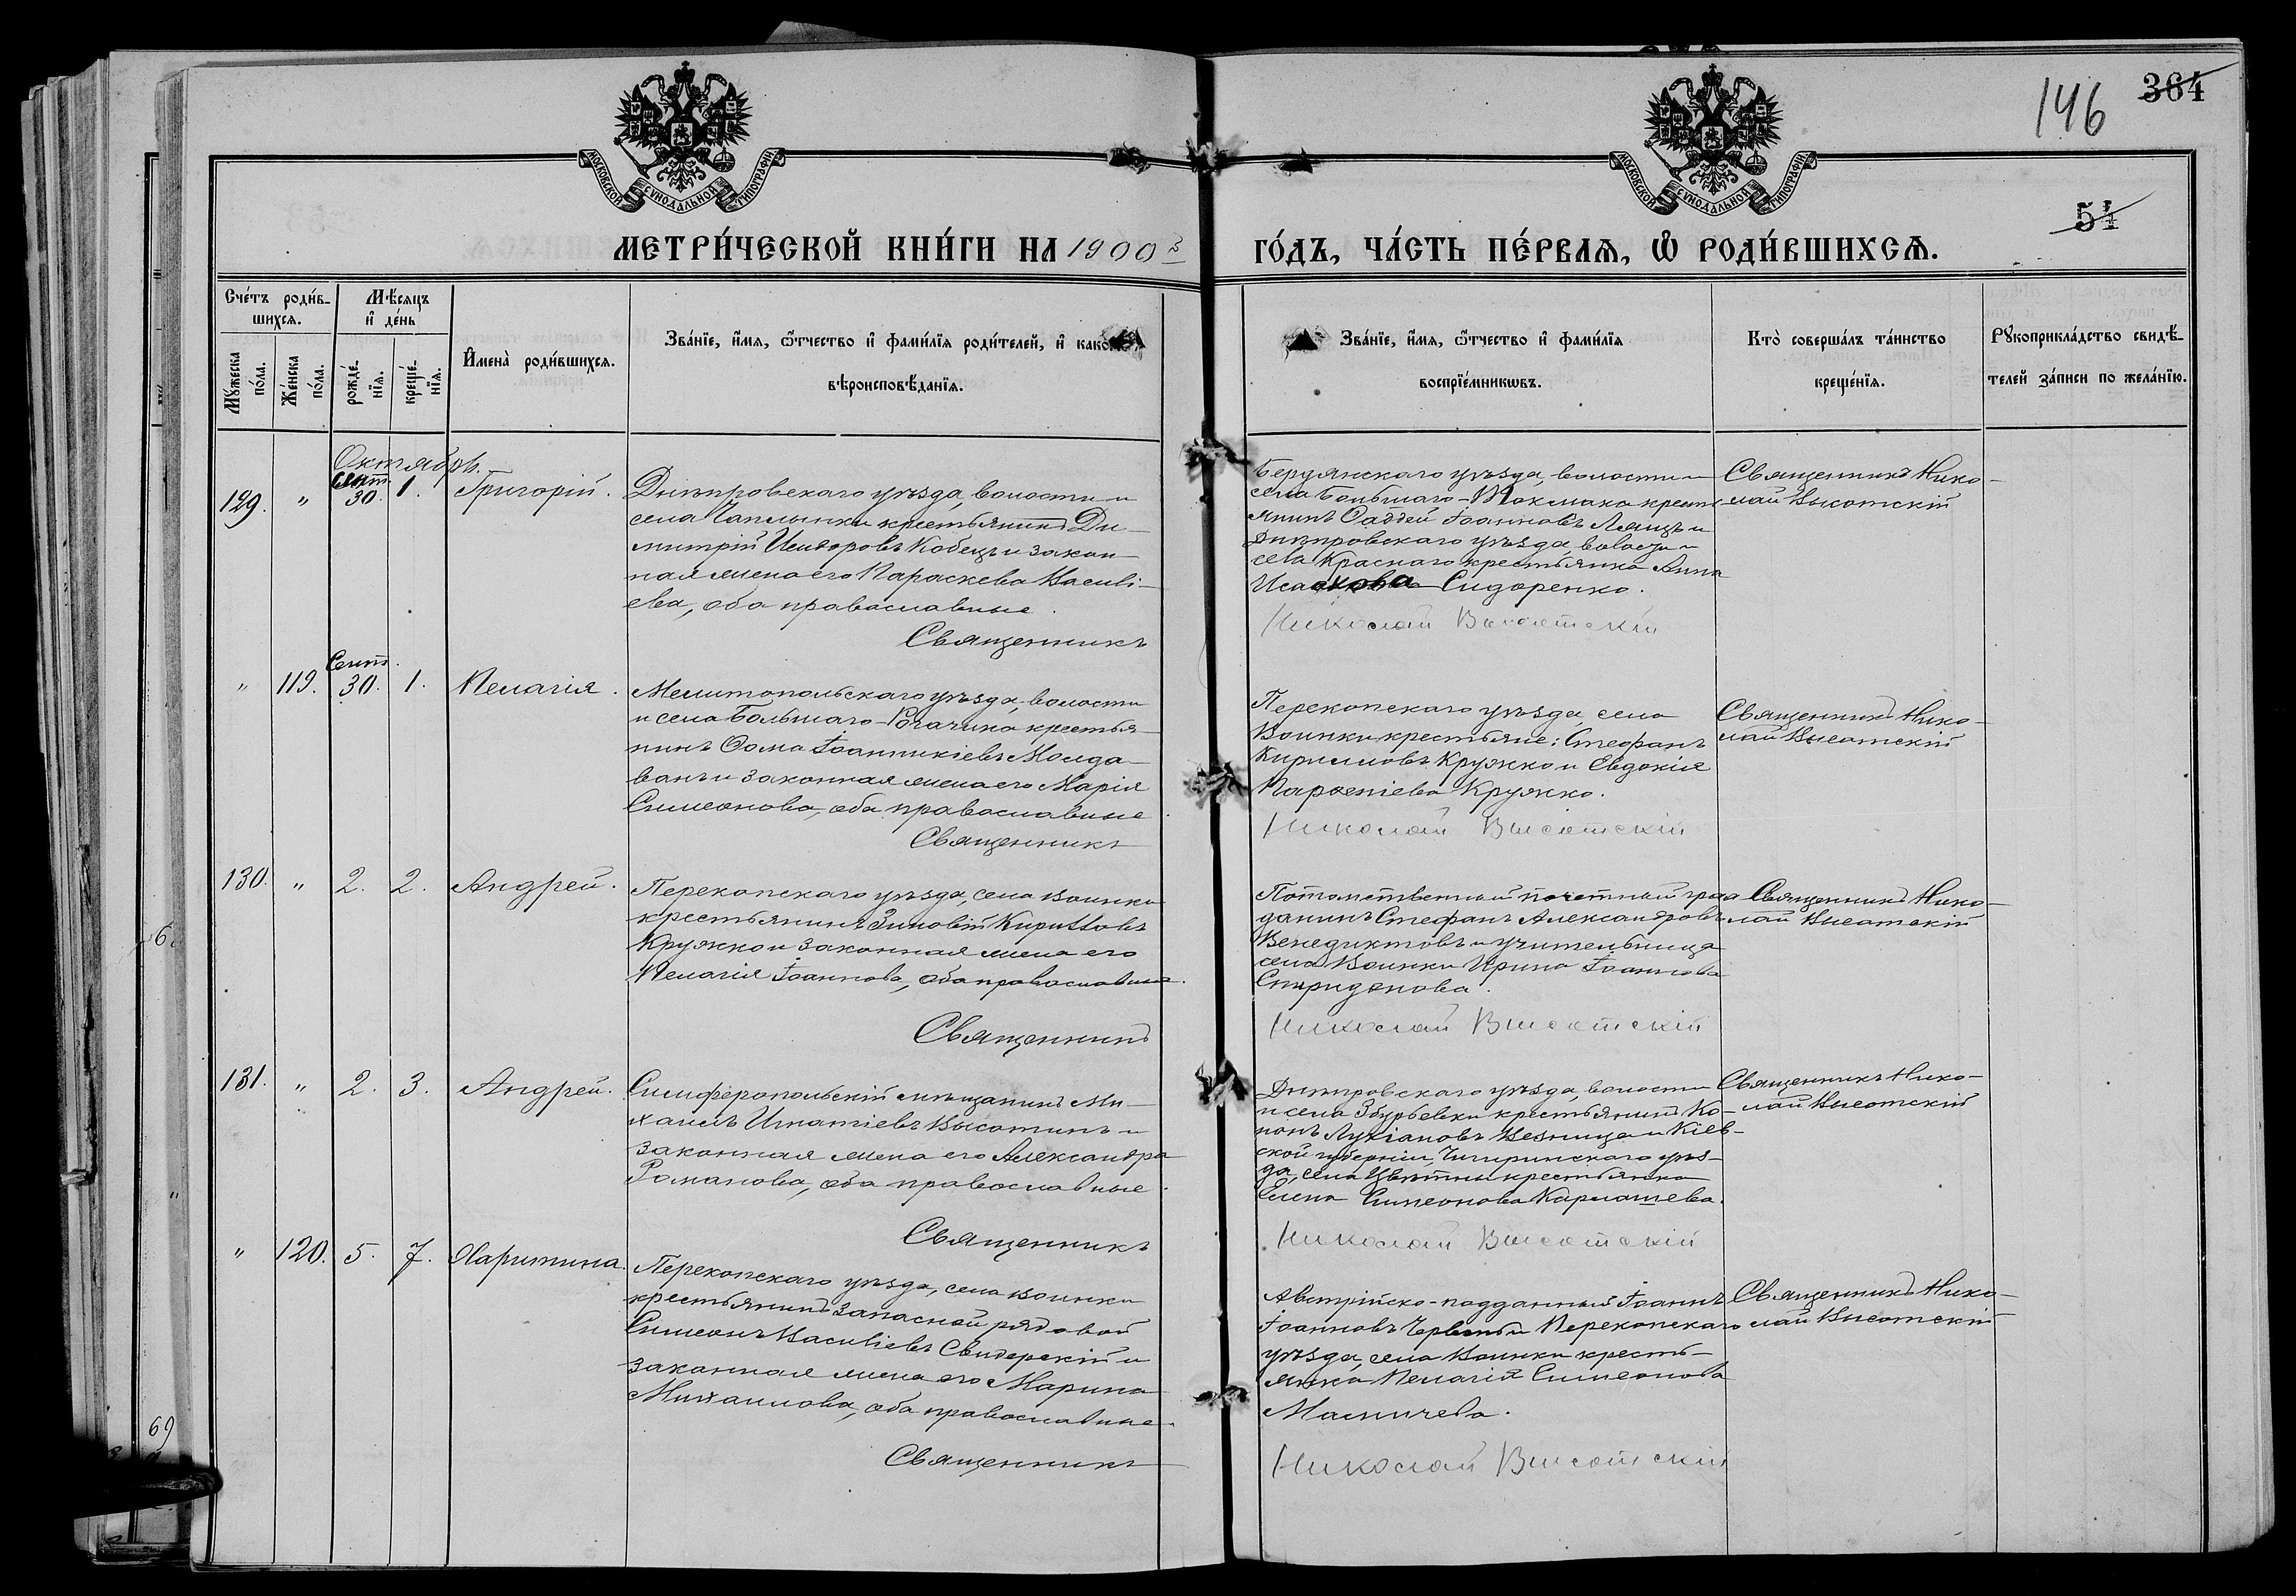 146
364
54
МОСКОВСКОЙ СѴНОДАЛЬНОЙ ТИПОГРАФІИ
МОСКОВСКОЙ СѴНОДАЛЬНОЙ ТИПОГРАФІИ
МЕТРИ́ЧЕСКОЙ КНИ́ГИ НА 1900й
ГО́ДЪ, ЧА́СТЬ ПЕ́РВАЯ, Ѡ РОДИ́ВШИХСЯ.
Сче́тъ роди́в-
шихся.
Мѣ́сяцъ
и҆ де́нь
Мꙋ́жеска
по́ла.
Же́нска
по́ла.
рожде́-
нїя.
креще́-
нїя.
И҆мена̀ роди́вшихся.
Зва́нїе, и҆́мя, ѻ҆́тчество и҆ фами́лїя роди́телей, и҆ како́гѡ
вѣроисповѣ́данїя.
Зва́нїе, и҆́мя, ѻ҆́тчество и҆ фами́лїя
воспрїе́мникѡвъ.
Кто̀ соверша́лъ та́инство
креще́нїя.
Рꙋкоприкла́дство свидѣ́-
телей за́писи по жела́нїю.
Октябрь.
129. " Сент. 30. 1. Григорій.
Днѣпровскаго уѣзда, волости и
села Чаплынки крестьянинъ Ди-
митрій Исидоровъ Кобецъ и закон-
ная жена его Параскева Василі-
ева, оба православные.
Священникъ
Бердянскаго уѣзда, волости и
села Большаго-Токмака кресть-
янинъ Ѳаддей Іоанновъ Лящъ и
Днѣпровскаго уѣзда, волости и
села Краснаго крестьянка Анна
Исаакова Сидоренко.
Николай Высотскій
Священникъ Нико-
лай Высотскій
" 119. Сент. 30. 1. Пелагія.
Мелитопольскаго уѣзда, волости
и села Большаго-Рогачика крестья-
нинъ Ѳома Іоанникіевъ Молда-
ванъ и законная жена его Марія
Симеонова, оба православные.
Священникъ
Перекопскаго уѣзда, села
Воинки крестьяне: Стефанъ
Кирилловъ Кружко и Евдокія
Парѳеніева Кружко.
Николай Высотскій
Священникъ Нико-
лай Высотскій
130. " 2. 2. Андрей.
Перекопскаго уѣзда, села Воинки
крестьянинъ Зиновій Кирилловъ
Кружко и законная жена его
Пелагія Іоаннова, оба православные.
Священникъ
Потомственный почетный граж-
данинъ Стефанъ Александровъ
Венедиктовъ и учительница
села Воинки Ирина Іоаннова
Спиридонова.
Николай Высотскій
Священникъ Нико-
лай Высотскій
131. " 2. 3. Андрей.
Симферопольскій мѣщанинъ Ми-
хаилъ Игнатіевъ Высотинъ и
законная жена его Александра
Романова, оба православные.
Священникъ
Днѣпровскаго уѣзда, волости
и села Збурьевки крестьянинъ Ко-
нонъ Лукіановъ и Кіев-
ской губерніи, Чигиринскаго уѣз-
да, села Цвѣтны крестьянка
Елена Симеонова Карлашева.
Николай Высотскій
Священникъ Нико-
лай Высотскій
" 120. 5. 7. Харитина.
Перекопскаго уѣзда, села Воинки
крестьянинъ запасной рядовой
Симеонъ Василіевъ Свидерскій и
законная жена его Марина
Михаилова, оба православные.
Священникъ
Австрійско-подданный Іоаннъ
Іоанновъ Червены и Перекопскаго
уѣзда, села Воинки кресть-
янка Пелагія Симеонова
Масничева.
Николай Высотскій
Священникъ Нико-
лай Высотскій
69